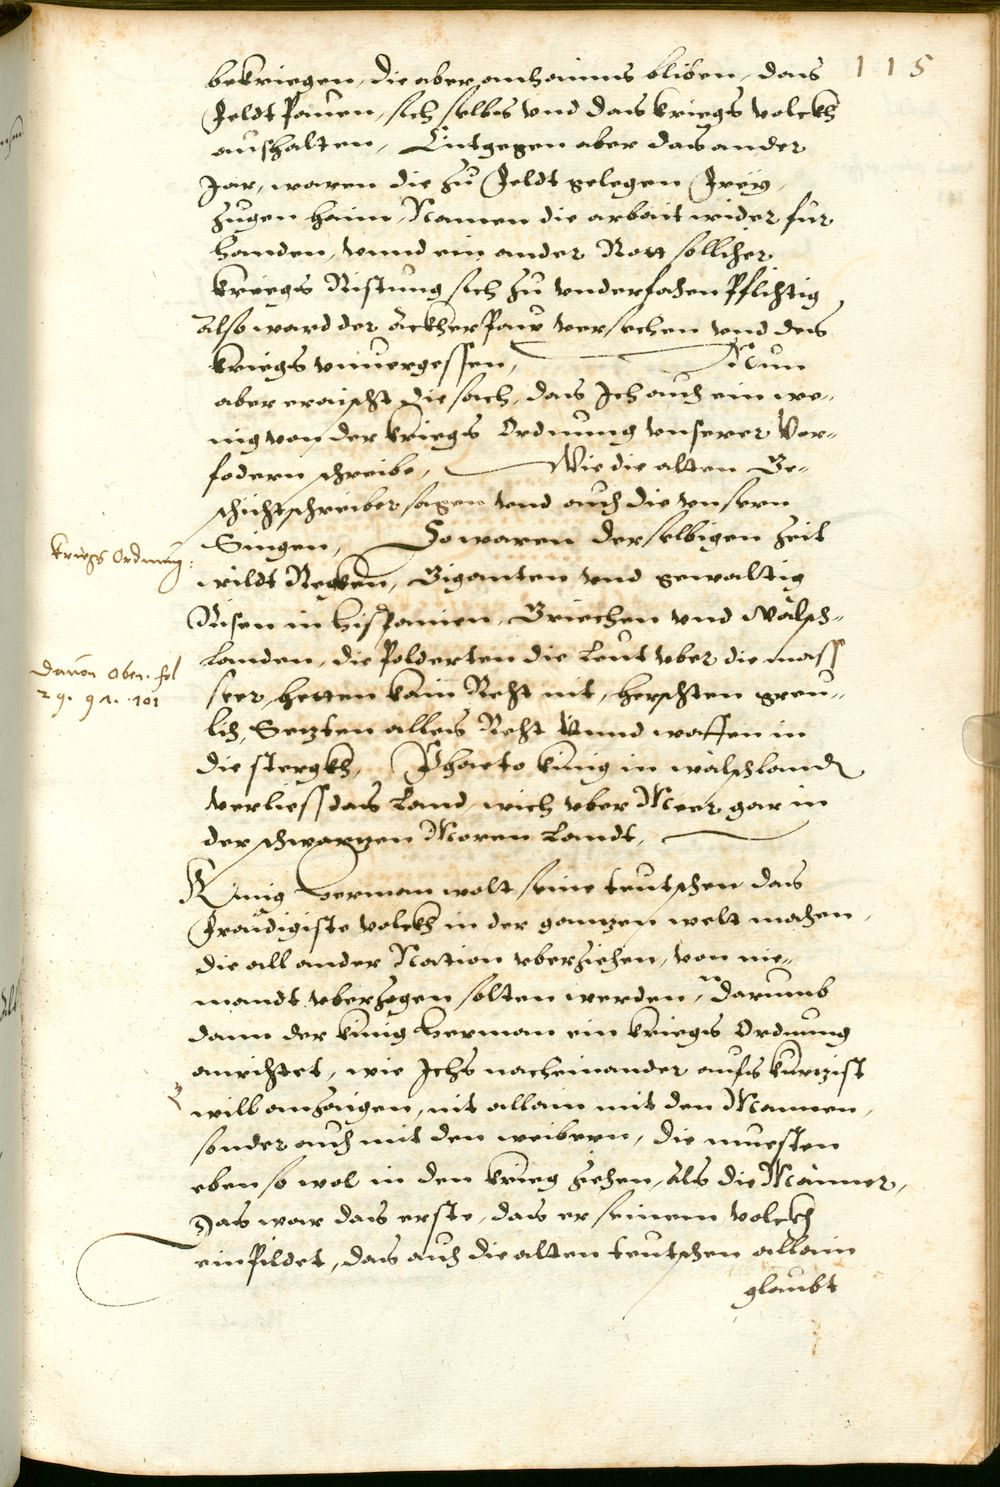 115
bekriegen, die aber anhaimis bliben, das
Feldt Pauen, sich selbs vnd das kriegs volckh
aushalten, Entgegen aber das ander
Jar, waren die zu Feldt gelegen Frey,
zugen haim, Namen die arbait wider fur
handen, vnnd ein ander Rott sollicher
kriegs Ristung sich zu vnderfahen Pflichtig
Also ward der äckher Paw versechen vnd des
kriegs vnuergessen, Nun
aber eraischt die sach, das Ich auch ein we„
nig von der kriegs Ordnung vnserer Vor„
fodern schreibe, Wie die alten Ge„
schichtschreiber sagen vnd auch die vnsern
kriegs Ordnung:
Singen, So waren derselbigen Zeit
wildt Regken, Giganten vnd gewaltig
Risen in hispanien, Griechen vnd Wälsch„
dauon oben. fol
29. 91. 101
Landen, die Polderten die Leut vber die mass
seer, hetten kain Recht nit, herschten greu„
lich, Setzten alles Recht Vnnd waffen in
die sterckh, Phaeto künig in wälschlandt
verliess das Land, wich vber Meer gar in
der schwartzen Moren Landt,
Künig Herman wolt seine teutschen das
Fraidigiste volckh in der gantzen welt machen,
die all ander Nation vberziehen, von nie„
mandt vberzogen solten werden, darumb
dann der künig Herman ein kriegs Ordnung
anrichtet, wie Ichs nacheinander aufs kurtzist
will anzaigen, nit allain mit den Mannen,
sonder auch mit den weibern, die muesten
eben so wol in den krieg ziehen, als die Männer,
Das war das erste, das er seinem volckh
einpildet, das auch die alten teutschen allain
glaubt